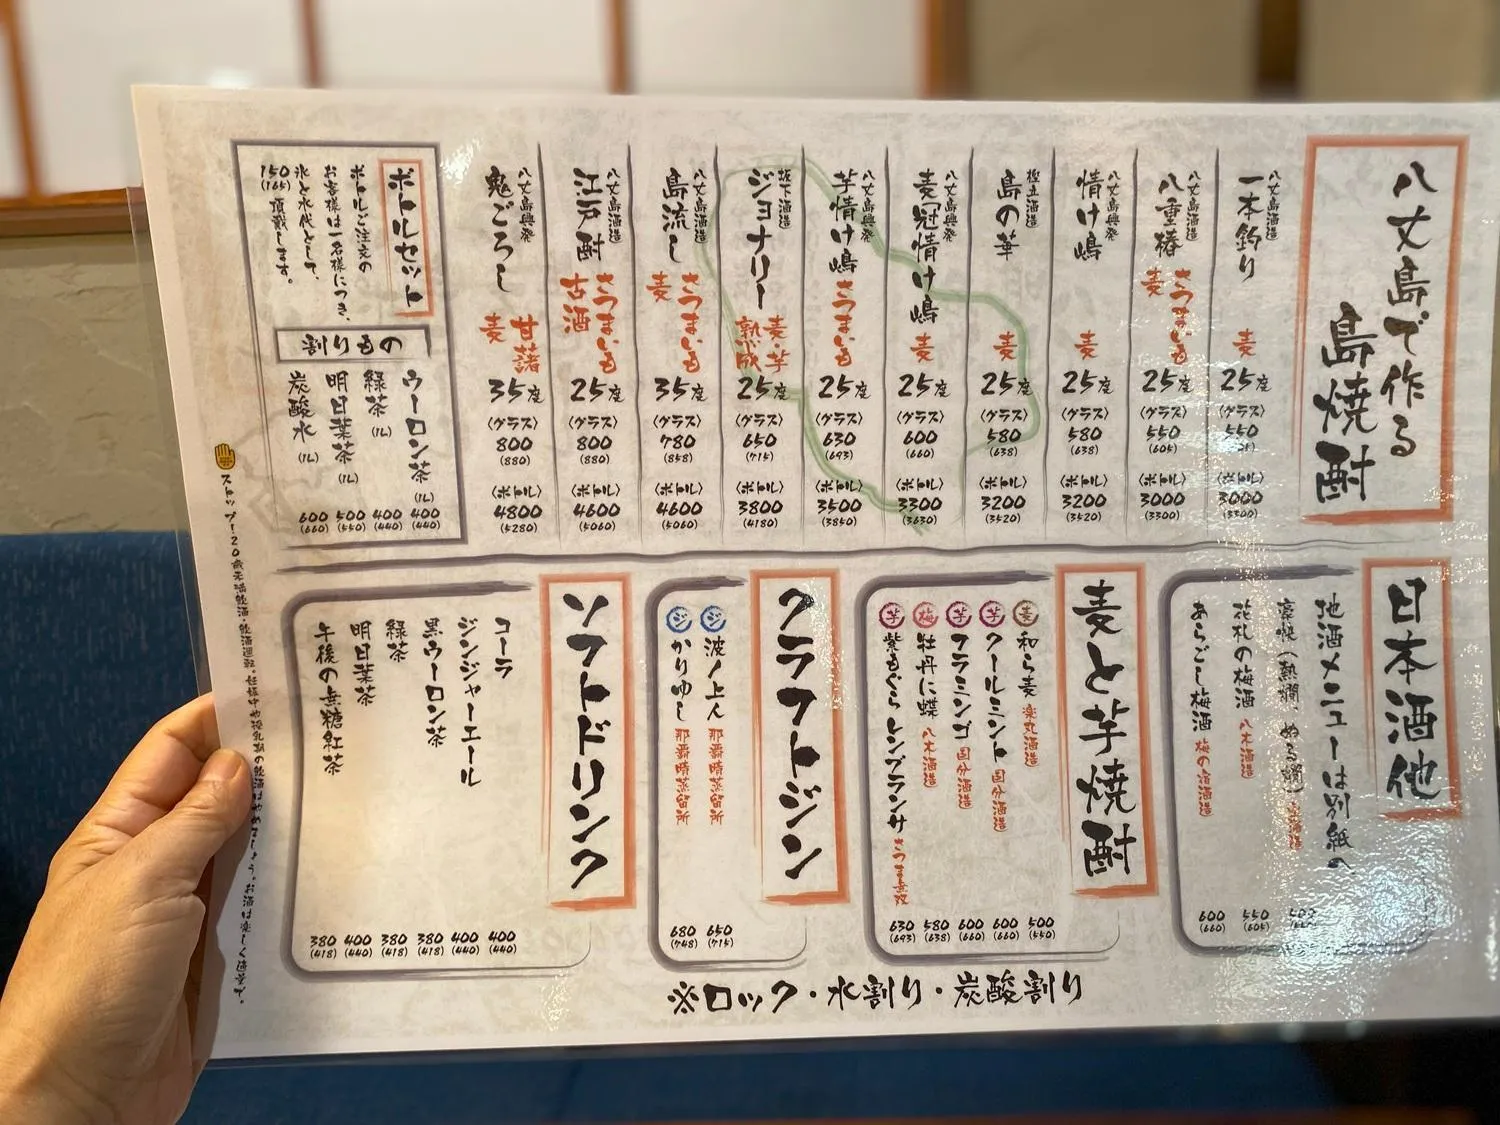 八丈島で作る
島焼酎
八丈島酒造
一本釣り
麦
25度
〈グラス〉
550
〈ボトル〉
3000
(3300)
八丈島酒造
八重椿
さつまいも
麦
25度
〈グラス〉
550
(605)
〈ボトル〉
3000
(3300)
八丈島興発
情け嶋
麦
25度
〈グラス〉
580
(638)
〈ボトル〉
3200
(3520)
樫立酒造
島の華
麦
25度
〈グラス〉
580
(638)
〈ボトル〉
3200
(3520)
八丈島興発
麦冠情け嶋
麦
25度
〈グラス〉
600
(660)
〈ボトル〉
3300
(3630)
八丈島興発
芋情け嶋
さつまいも
25度
〈グラス〉
630
(693)
〈ボトル〉
3500
(3850)
坂下酒造
ジョナリー
麦・芋
熟成
25度
〈グラス〉
650
(715)
〈ボトル〉
3800
(4180)
八丈島酒造
島流し
さつまいも
麦
35度
〈グラス〉
780
(858)
〈ボトル〉
4600
(5060)
八丈島酒造
江戸酎
さつまいも
古酒
25度
〈グラス〉
800
(880)
〈ボトル〉
4600
(5060)
八丈島興発
鬼ごろし
甘藷
麦
35度
〈グラス〉
800
(880)
〈ボトル〉
4800
(5280)
ボトルセット
ボトルご注文の
お客様は一名様につき、
氷と水代として、
150(165)頂戴します。
割りもの
ウーロン茶(1L) 400(440)
緑茶(1L) 400(440)
明日葉茶(1L) 500(550)
炭酸水(1L) 600(660)
日本酒他
地酒メニューは別紙へ
豪快(熱燗、ぬる燗)
花札の梅酒 八木酒造 550(605)
あらごし梅酒 梅の宿酒造 600(660)
麦と芋焼酎
麦 和ら麦 楽丸酒造 500(550)
芋 クールミント 国分酒造 600(660)
芋 フラミンゴ 国分酒造 600(660)
梅 牡丹に蝶 八木酒造 580(638)
芋 紫もぐら レンブランサ さつま無双 630(693)
クラフトジン
ジ 波ノ上人 那覇蒸留所 650(715)
ジ かりゆし 那覇蒸留所 680(748)
ソフトドリンク
コーラ 400(440)
ジンジャーエール 400(440)
黒ウーロン茶 380(418)
緑茶 380(418)
明日葉茶 400(440)
午後の無糖紅茶 380(418)
※ロック・水割り・炭酸割り
ストップ!20歳未満飲酒・飲酒運転。妊娠中や授乳期の飲酒はやめましょう。お酒は楽しく適量で。